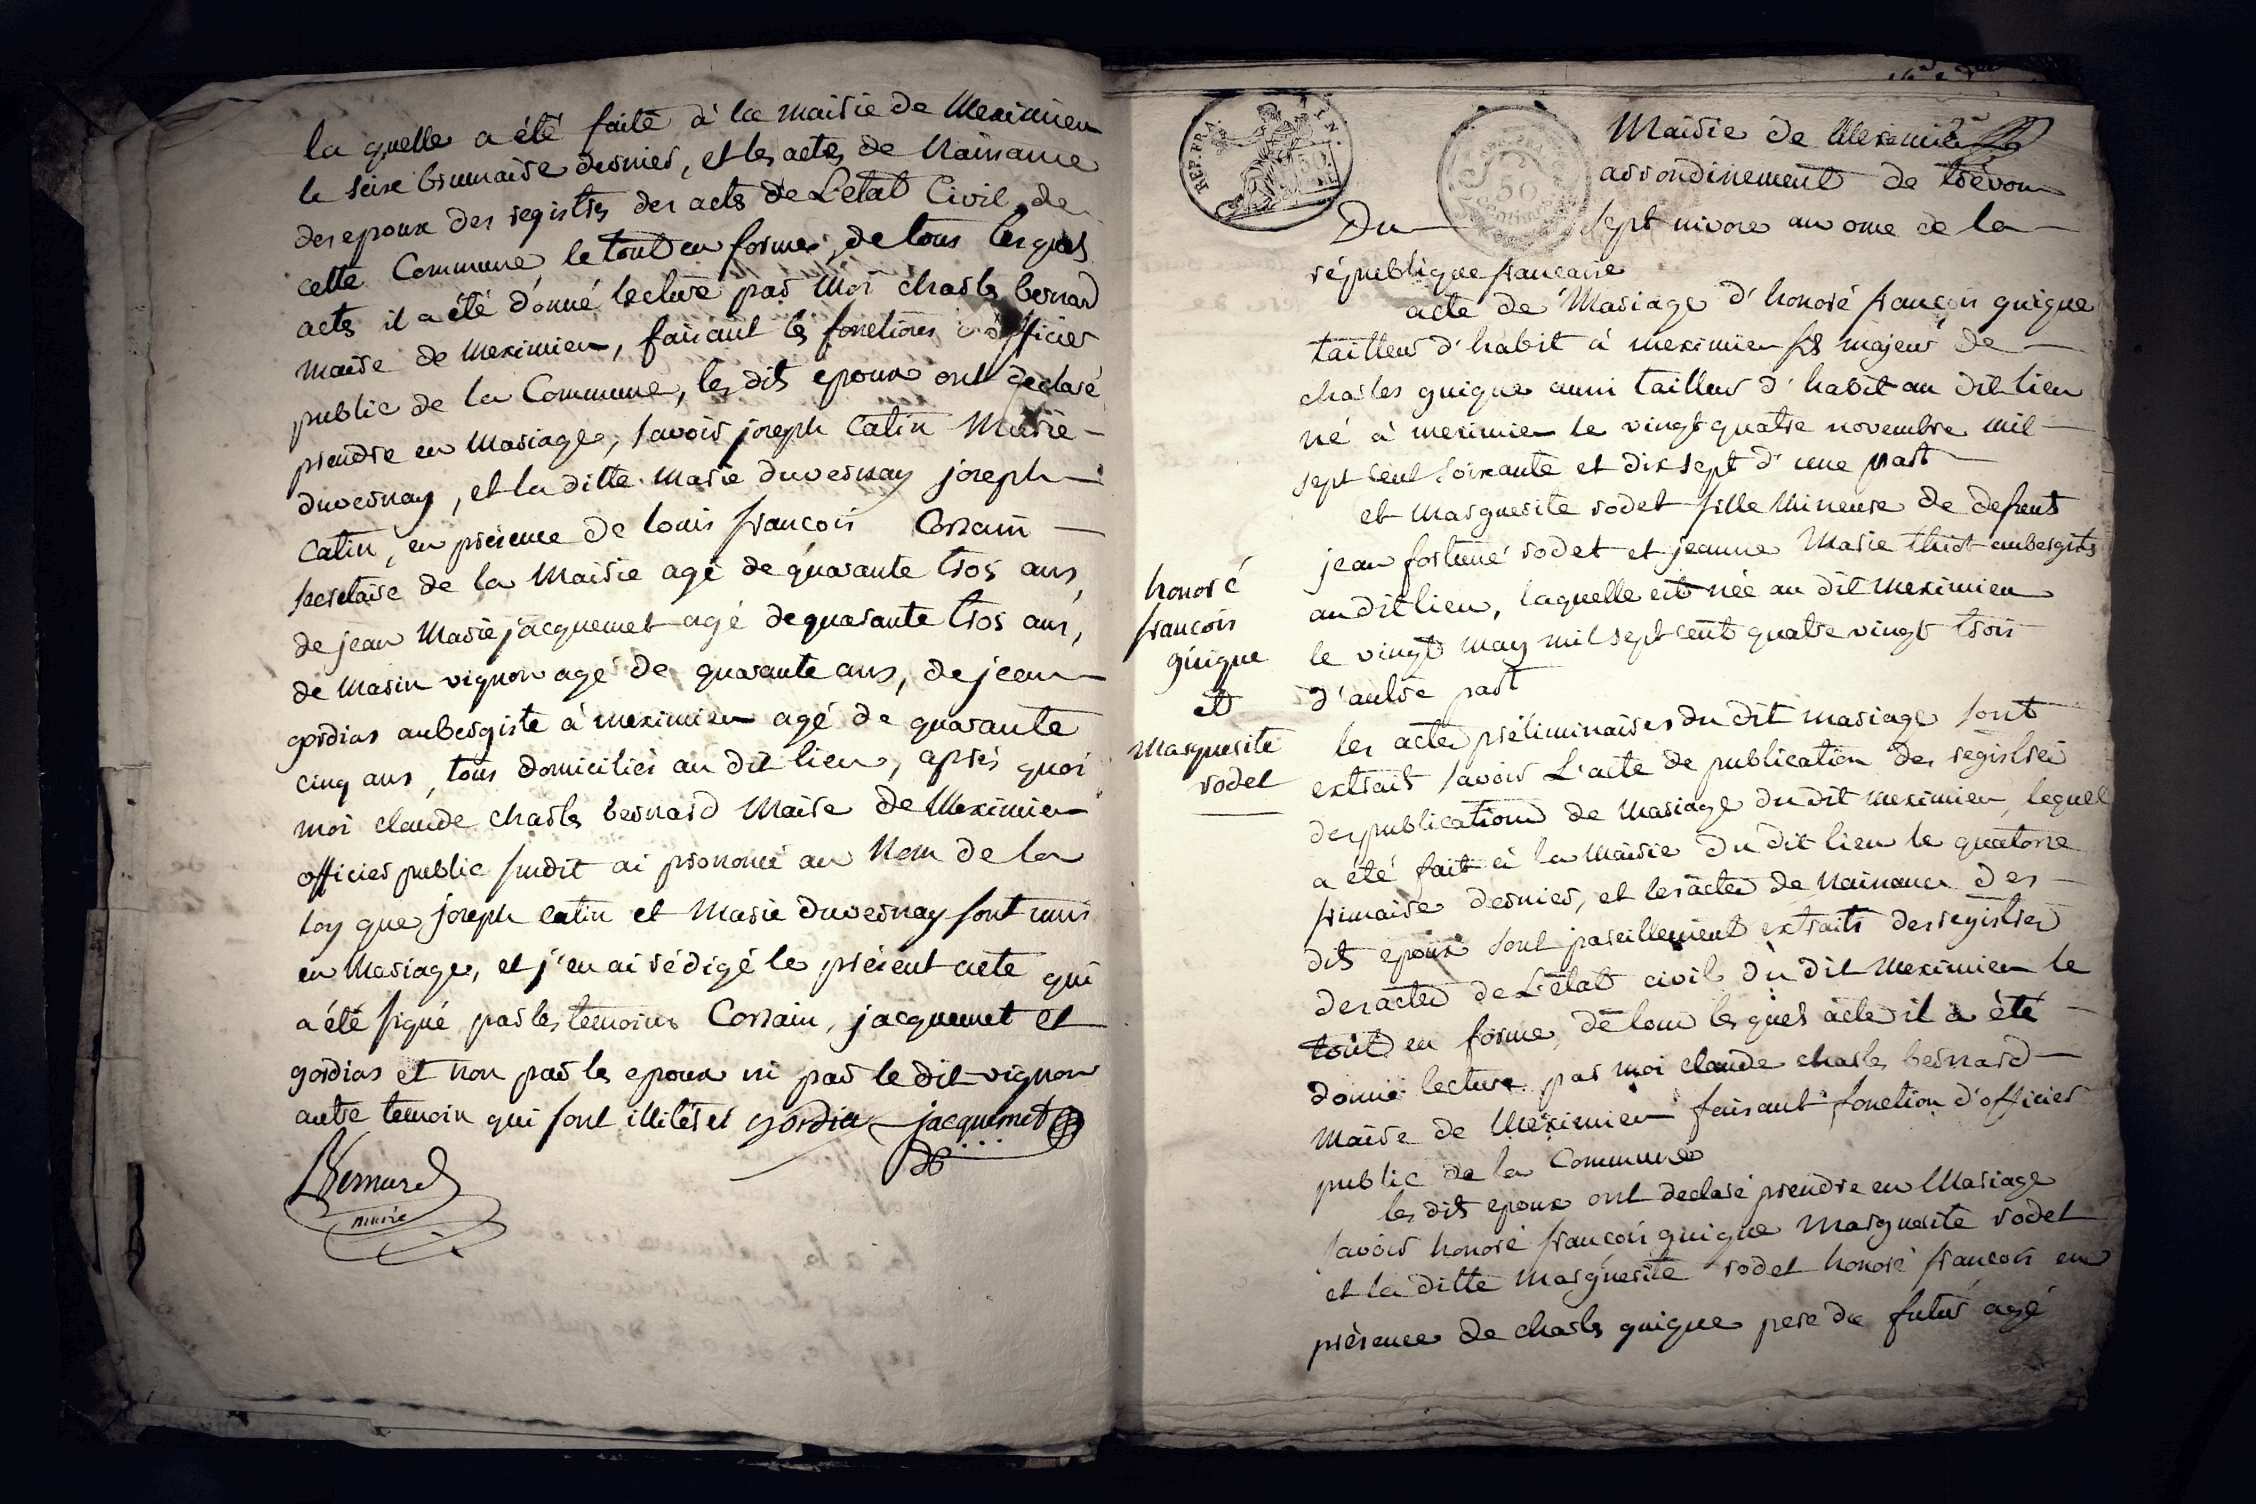 la quelle a été faite à la mairie de Meximieu
le seize brumaire dernier, et les actes de Naissance
des epoux des registres des actes de L'etat Civil de
cette Commune, le tout en forme, de tous lesquels
actes il a été donné lecture par Moi charles bernard
Maire de Meximieu, faisant les fonctions d'officier
public de la Commune, les dits epoux ont declaré
prendre en Mariage, savoir joseph Catin Marie
duvernay, et la ditte Marie duvernay joseph
Catin, en présence de louis françois Corrain
secretaire de la Mairie agé de quarante trois ans,
de jean Marie jacquemet agé de quarante trois ans,
de Marin vignon agé de quarante ans, de jean
gordias aubergiste à meximieu agé de quarante
cinq ans, tous domiciliés au dit lieu, aprés quoi
moi claude charles bernard Maire de Meximieu
officier public susdit ai prononcé au Nom de la
loy que joseph catin et Marie duvernay sont unis
en Mariage, et j'en ai rédigé le présent acte qui
a été signé par les temoins Corrain, jacquemet et
gordias et non par les epoux ni par le dit vignon
autre temoin qui sont illiterés gordias jacquemet
Bernard
maire
REP. FRA.
50
centimes
Mairie de Meximieu
arrondinement de trévoux
Du sept nivose an onze de la
république francaise
acte de Mariage d'honoré françois guigue
tailleur d'habit à meximieu fils majeur de
charles guigue aussi tailleur d'habit au dit lieu
né à meximieu le vingt quatre novembre mil
sept cent soixante et dix sept d'une part
et Marguerite rodet fille Mineure de defunts
jean fortuné rodet et jeanne Marie aubergistes
au dit lieu, laquelle est née au dit meximieu
le vingt may mil sept cent quatre vingt trois
d'autre part
honoré
françois
guigue
et
Marguerite
rodet
les actes préliminaires du dit mariage sont
extrait savoir L'acte de publication des registres
des publications de Mariage du dit meximieu, lequel
a été fait à la Mairie du dit lieu le quatorze
frimaire dernier, et les actes de Naissance des
dits epoux sont pareillement extraits des registres
des actes de L'etat civil du dit Meximieu le
tout en forme, de tous lesquels actes il a été
donné lecture par moi claude charles bernard
Maire de Meximieu faisant fonction d'officier
public de la Commune
les dits epoux ont declaré prendre en Mariage
savoir honoré françois guigue Marguerite rodet
et la ditte Marguerite rodet honoré françois en
présence de charles guigue pere du futur agé